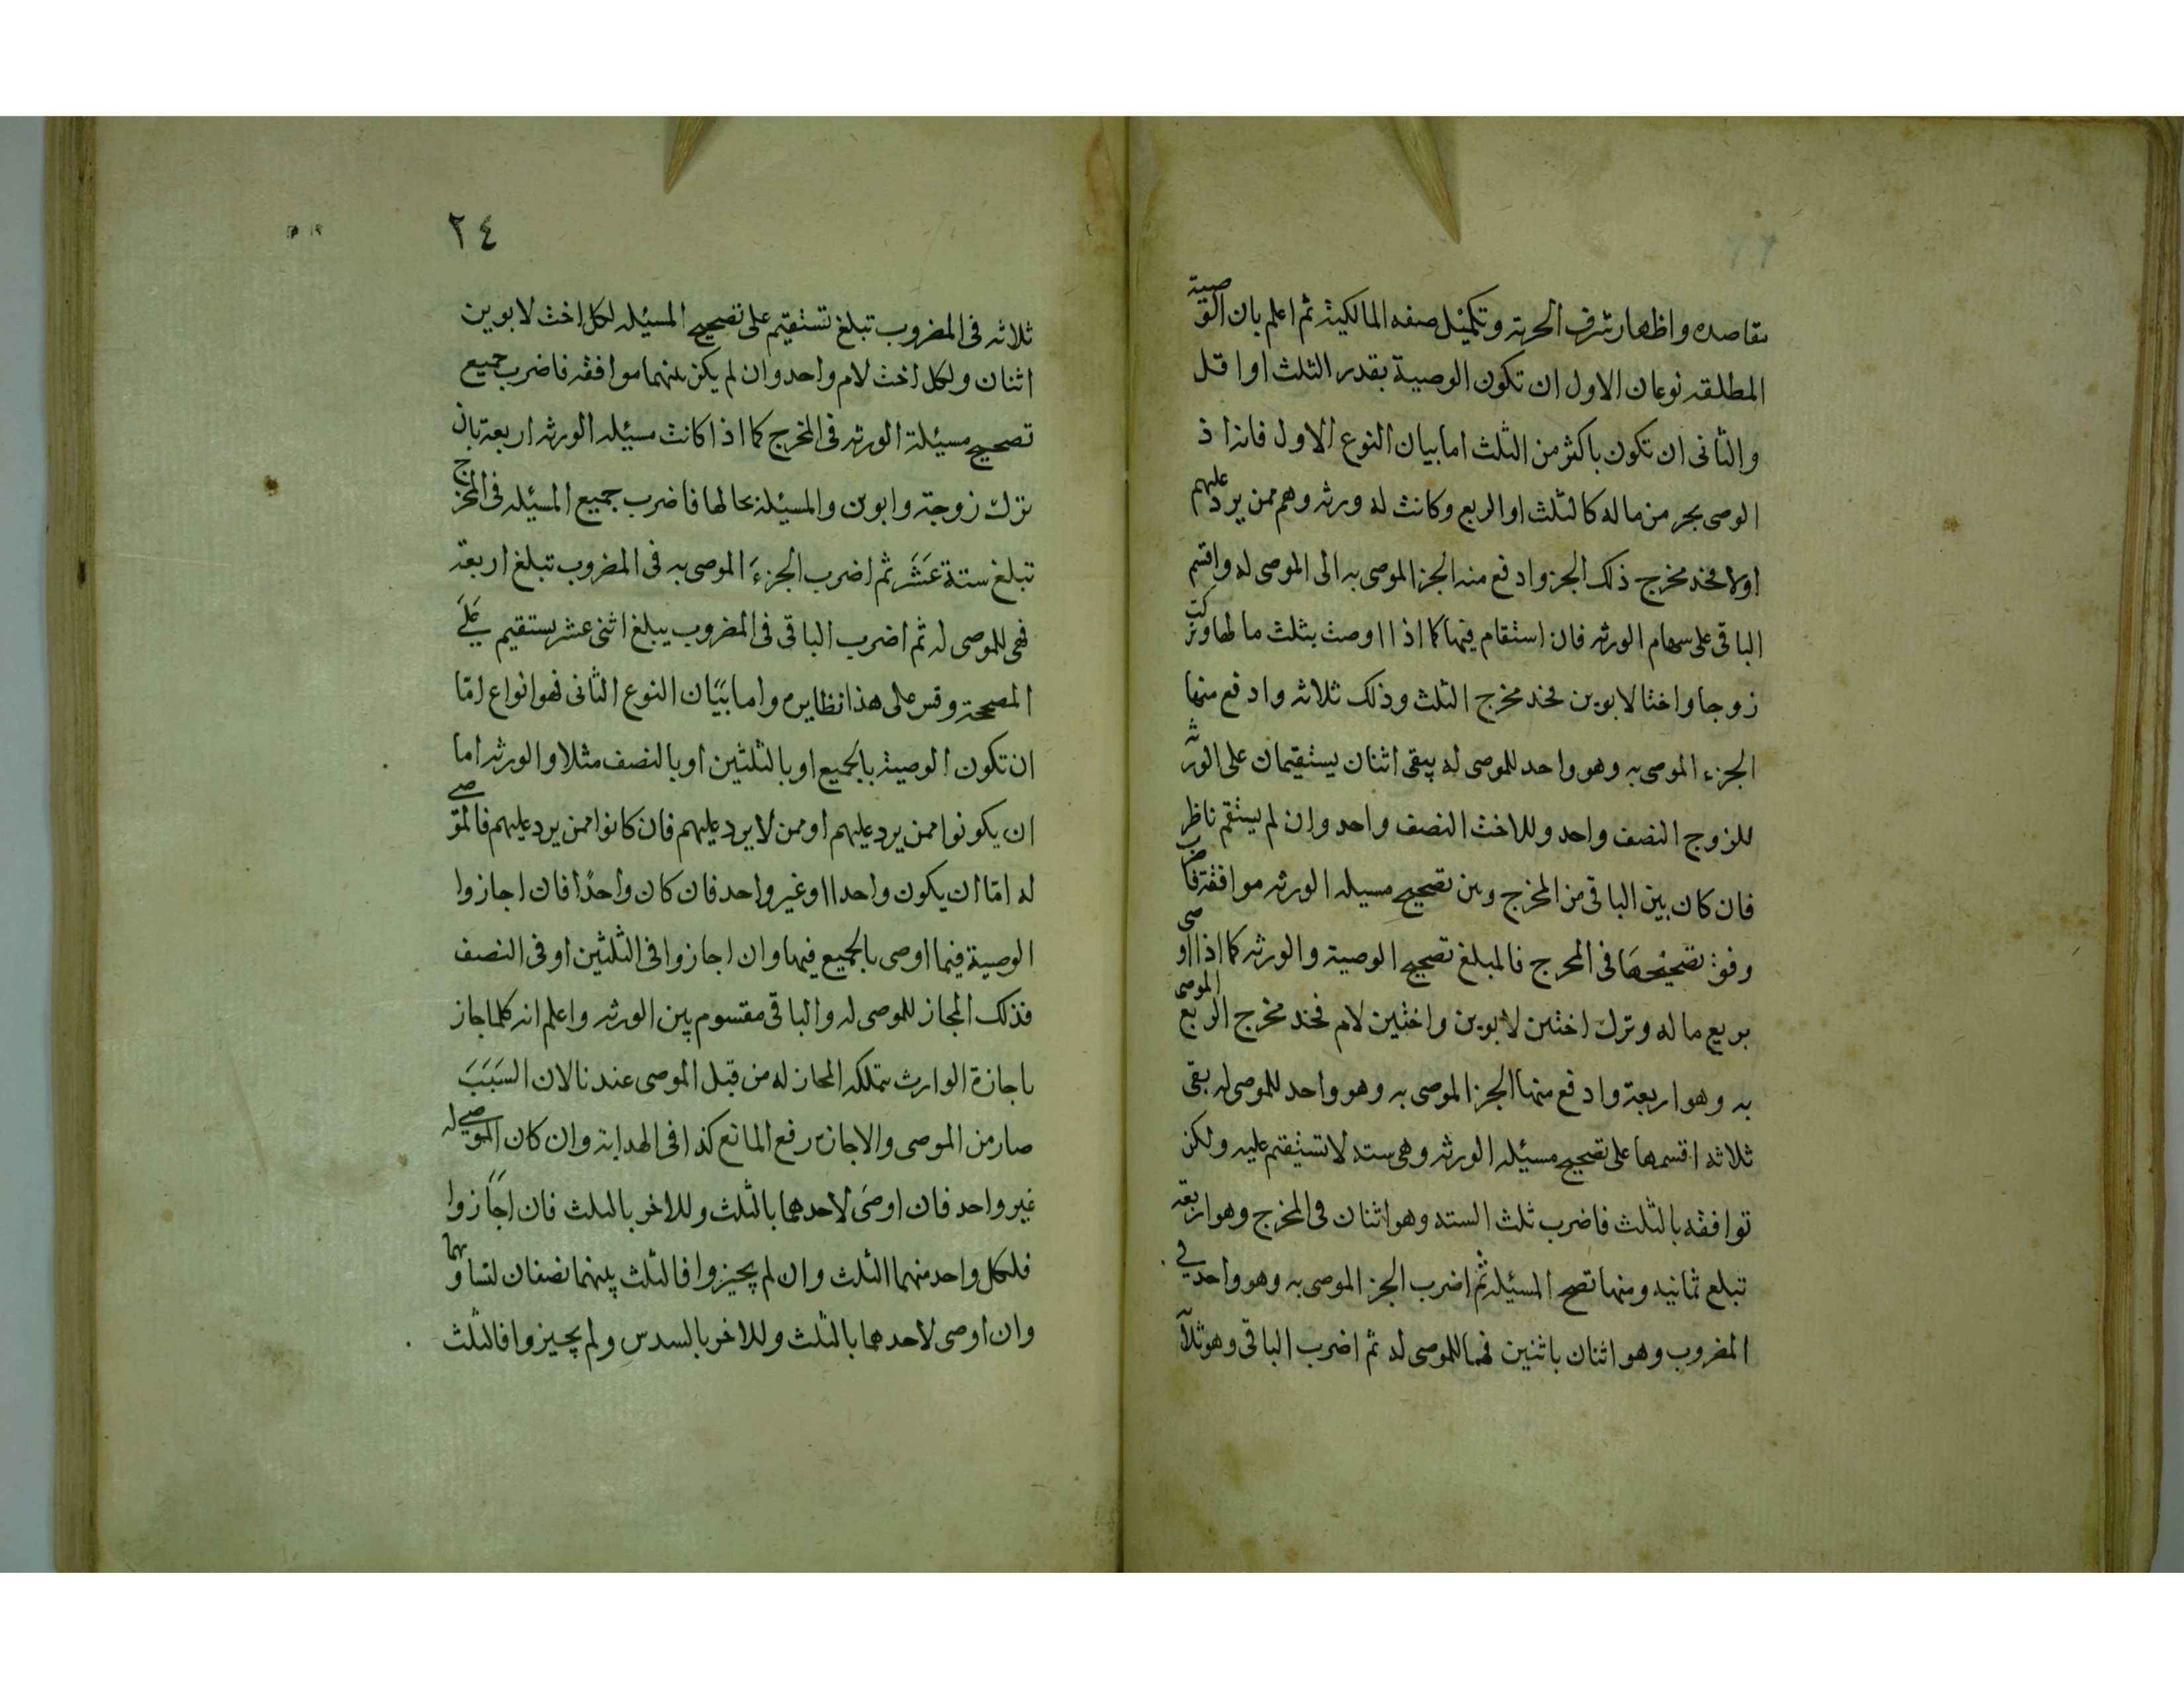 مقاصده واظهار شرف الحرية وتكميل صفه المالكية ثم اعلم بان الوصية
المطلقه نوعان الاول ان تكون الوصية بقدر الثلث او اقل
والثانى ان تكون باكثر من الثلث اما بيان النوع الاول فانه اذ
الوصى بجز من ماله كالثلث او الربع وكانت له ورثه وهم ممن يرد عليهم
اولا فخذ مخرج ذلك الجز وادفع منه الجز الموصى به الى الموصى له واقسم
الباقى على سهام الورثه فان استقام فيها كما اذا اوصت بثلث مالها وتركت
زوجا واختا لابوين فخذ مخرج الثلث وذلك ثلاثه وادفع منها
الجزء الموصى به وهو واحد للموصى له يبقى اثنان يستقيمان على الورثه
للزوج النصف واحد وللاخت النصف واحد وان لم يستقم ناظر
فان كان بين الباقى من المخرج وبين تصحيح مسيله الورثه موافقة فاضرب
وفق تصحيحها فى المخرج فالمبلغ تصحيح الوصية والورثه كما اذا اوصى
بربع ماله وترك اختين لابوين واختين لام فخذ مخرج الربع الموصى
به وهو اربعة وادفع منها الجز الموصى به وهو واحد للموصى له بقى
ثلاثه اقسمها على تصحيح مسيله الورثه وهى سته لا تستيقم عليه ولكن
توافقه بالثلث فاضرب ثلث السته وهو اثنان فى المخرج وهو اربعة
تبلغ ثمانيه ومنها تصح المسيله ثم اضرب الجز الموصى به وهو واحد فى
المضروب وهو اثنان باثنين فهما للموصى له ثم اضرب الباقى وهو ثلاثة
٢٤
ثلاثه فى المضروب تبلغ تستقيم على تصحيح المسيله لكل اخت لابوين
اثنان ولكل اخت لام واحد وان لم يكن بينهما موافقه فاضرب جميع
تصحيح مسيئلة الورثه فى المخرج كما اذا كانت مسيله الورثه اربعة بان
ترك زوجة وابوين والمسيلة بحالها فاضرب جميع المسيله فى المخرج
تبلغ ستة عشر ثم اضرب الجزء الموصى به فى المضروب تبلغ اربعة
فهى للموصى له ثم اضرب الباقى فى المضروب يبلغ اثنى عشر يستقيم على
المصححة وقس على هذا نظايره واما بيان النوع الثانى فهو انواع اما
ان تكون الوصية بالجميع او بالثلثين او بالنصف مثلا والورثه اما
ان يكونوا ممن يرد عليهم او ممن لا يرد عليهم فان كانوا ممن يرد عليهم فالموصى
له اما ان يكون واحدا او غير واحد فان كان واحدا فان اجازوا
الوصية فيما اوصى بالجميع فيها وان اجازوا فى الثلثين او فى النصف
فذلك المجاز للموصى له والباقى مقسوم بين الورثه واعلم انه كلما جاز
باجازة الوارث يتملكه المجاز له من قبل الموصى عندنا لان السبب
صار من الموصى والاجازه رفع المانع كذا فى الهداية وان كان الموصى له
غير واحد فان اوصى لاحدهما بالثلث وللاخر بالثلث فان اجازوا
فلكل واحد منهما الثلث وان لم يجيزوا فالثلث بينهما نصفان لتساويهما
وان اوصى لاحدهما بالثلث وللاخر بالسدس ولم يجيزوا فالثلث